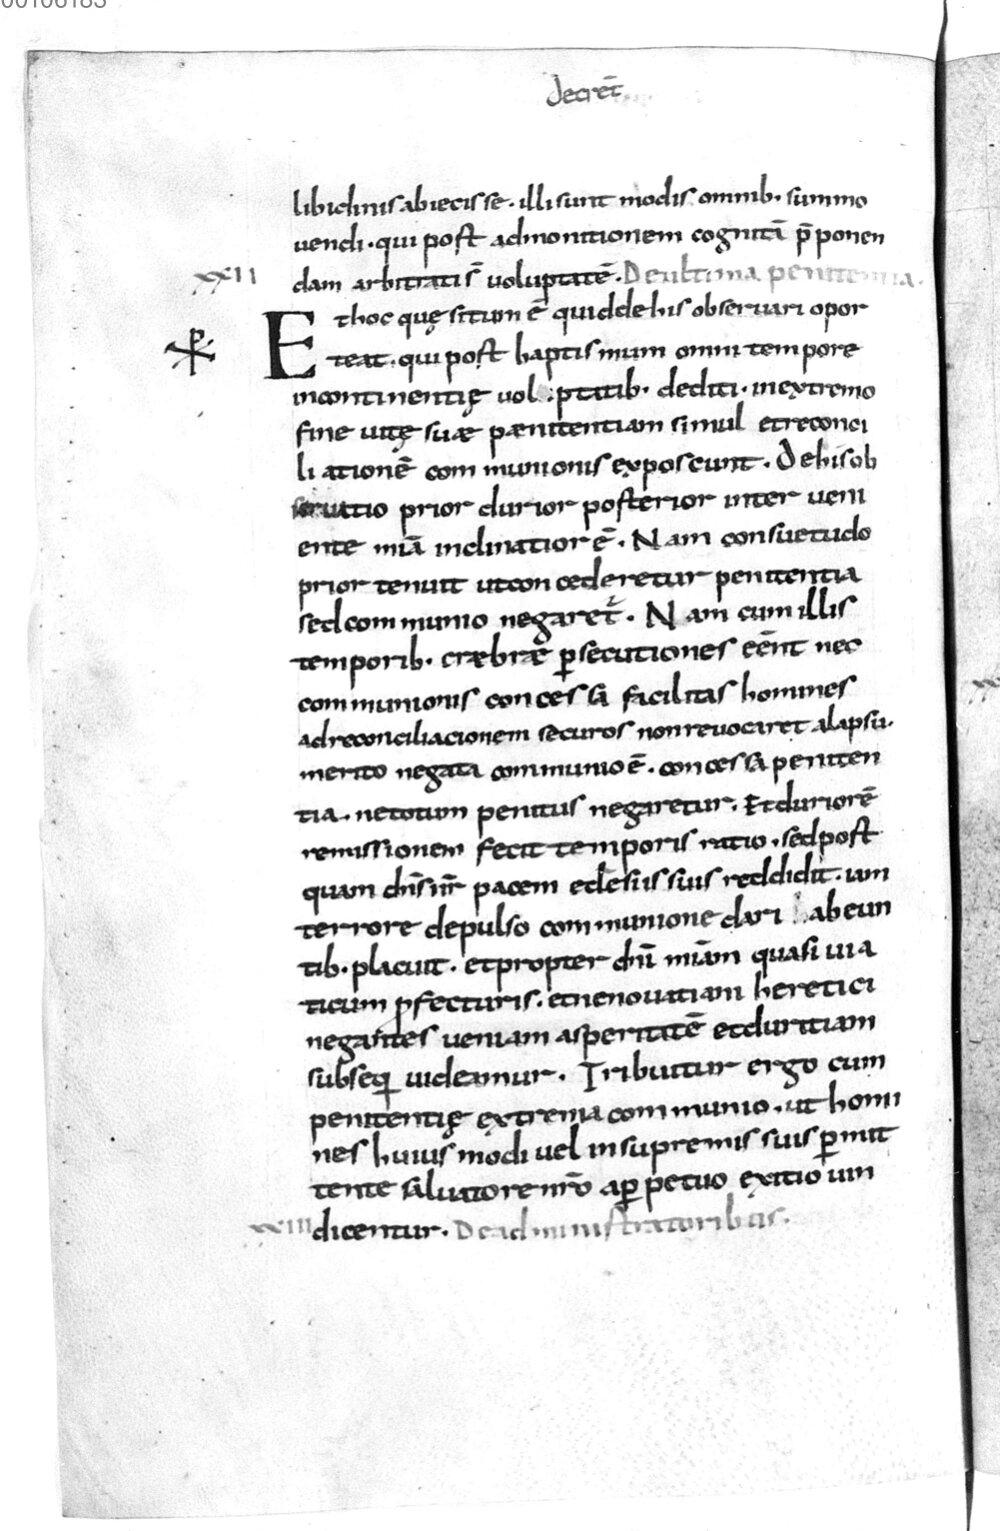 00106183
decret̄
libidinis abiecisse · illi sunt modis omnib · summo
uendi · qui post admonitionem cognitā p̄ponen
xxii dam arbitratis̄ uoluptatē · De ultima penitentia ·
Et hoc quę situm ē quid de his obseruari opor
teat · qui post baptismum omni tempore
incontinentię uol ptatib · dediti · in extremo
fine uitę suæ pænitentiam simul et reconci
li ationē communionis exposcunt · De his ob
seruatio prior durior posterior inter ueni
ente miā inclinatior ē · Nam consuetudo
prior tenuit ut concederetur penitentia
sed communio negaret̄ · Nam cum illis
temporib · cræbræ ꝑsecutiones eēnt nec
communionis concessa facilitas homines
ad reconciliacionem securos non reuocaret a lapsu ·
merito negata communio ē · concessa peniten
tia · ne totum penitus negaretur · Et duriorē
remissionem fecit temporis ratio · sed post
quam dn̄s nr̄ pacem eclesiis suis reddidit · iam
terrore depulso communione dari abeun
tib · placuit · et propter dn̄i miām quasi uia
ticum ꝓfecturis · et ne nouatiani heretici
negantes ueniam asperitatē et duritiam
subseq̄ uideamur · Tribuitur ergo cum
penitentię extrema communio · ut homi
nes huius modi uel in supremis suis ꝑmit
tente saluatore nr̄o a ꝑpetuo exitio uin
xxiii dicentur · De administratoribus ·